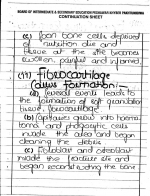 BOARD OF INTERMEDIATE & SECONDARY EDUCATION PESHAWAR KHYBER PAKHTUNKHWA
CONTINUATION SHEET
(c) bone cells deprived
of nutrition die and
tissue at the site becomes
swollen, painful and inflamed
(ii) Fibrocartilage
Callus Formation:-
(a) Several events leads to
the formation of soft granulation
tissue
(b) Capillaries grow into
and phagocytic cells
invade the area and began
cleaning the debris
(c) Fibroblast and osteoblast
invade the site and
began reconstructing the bone